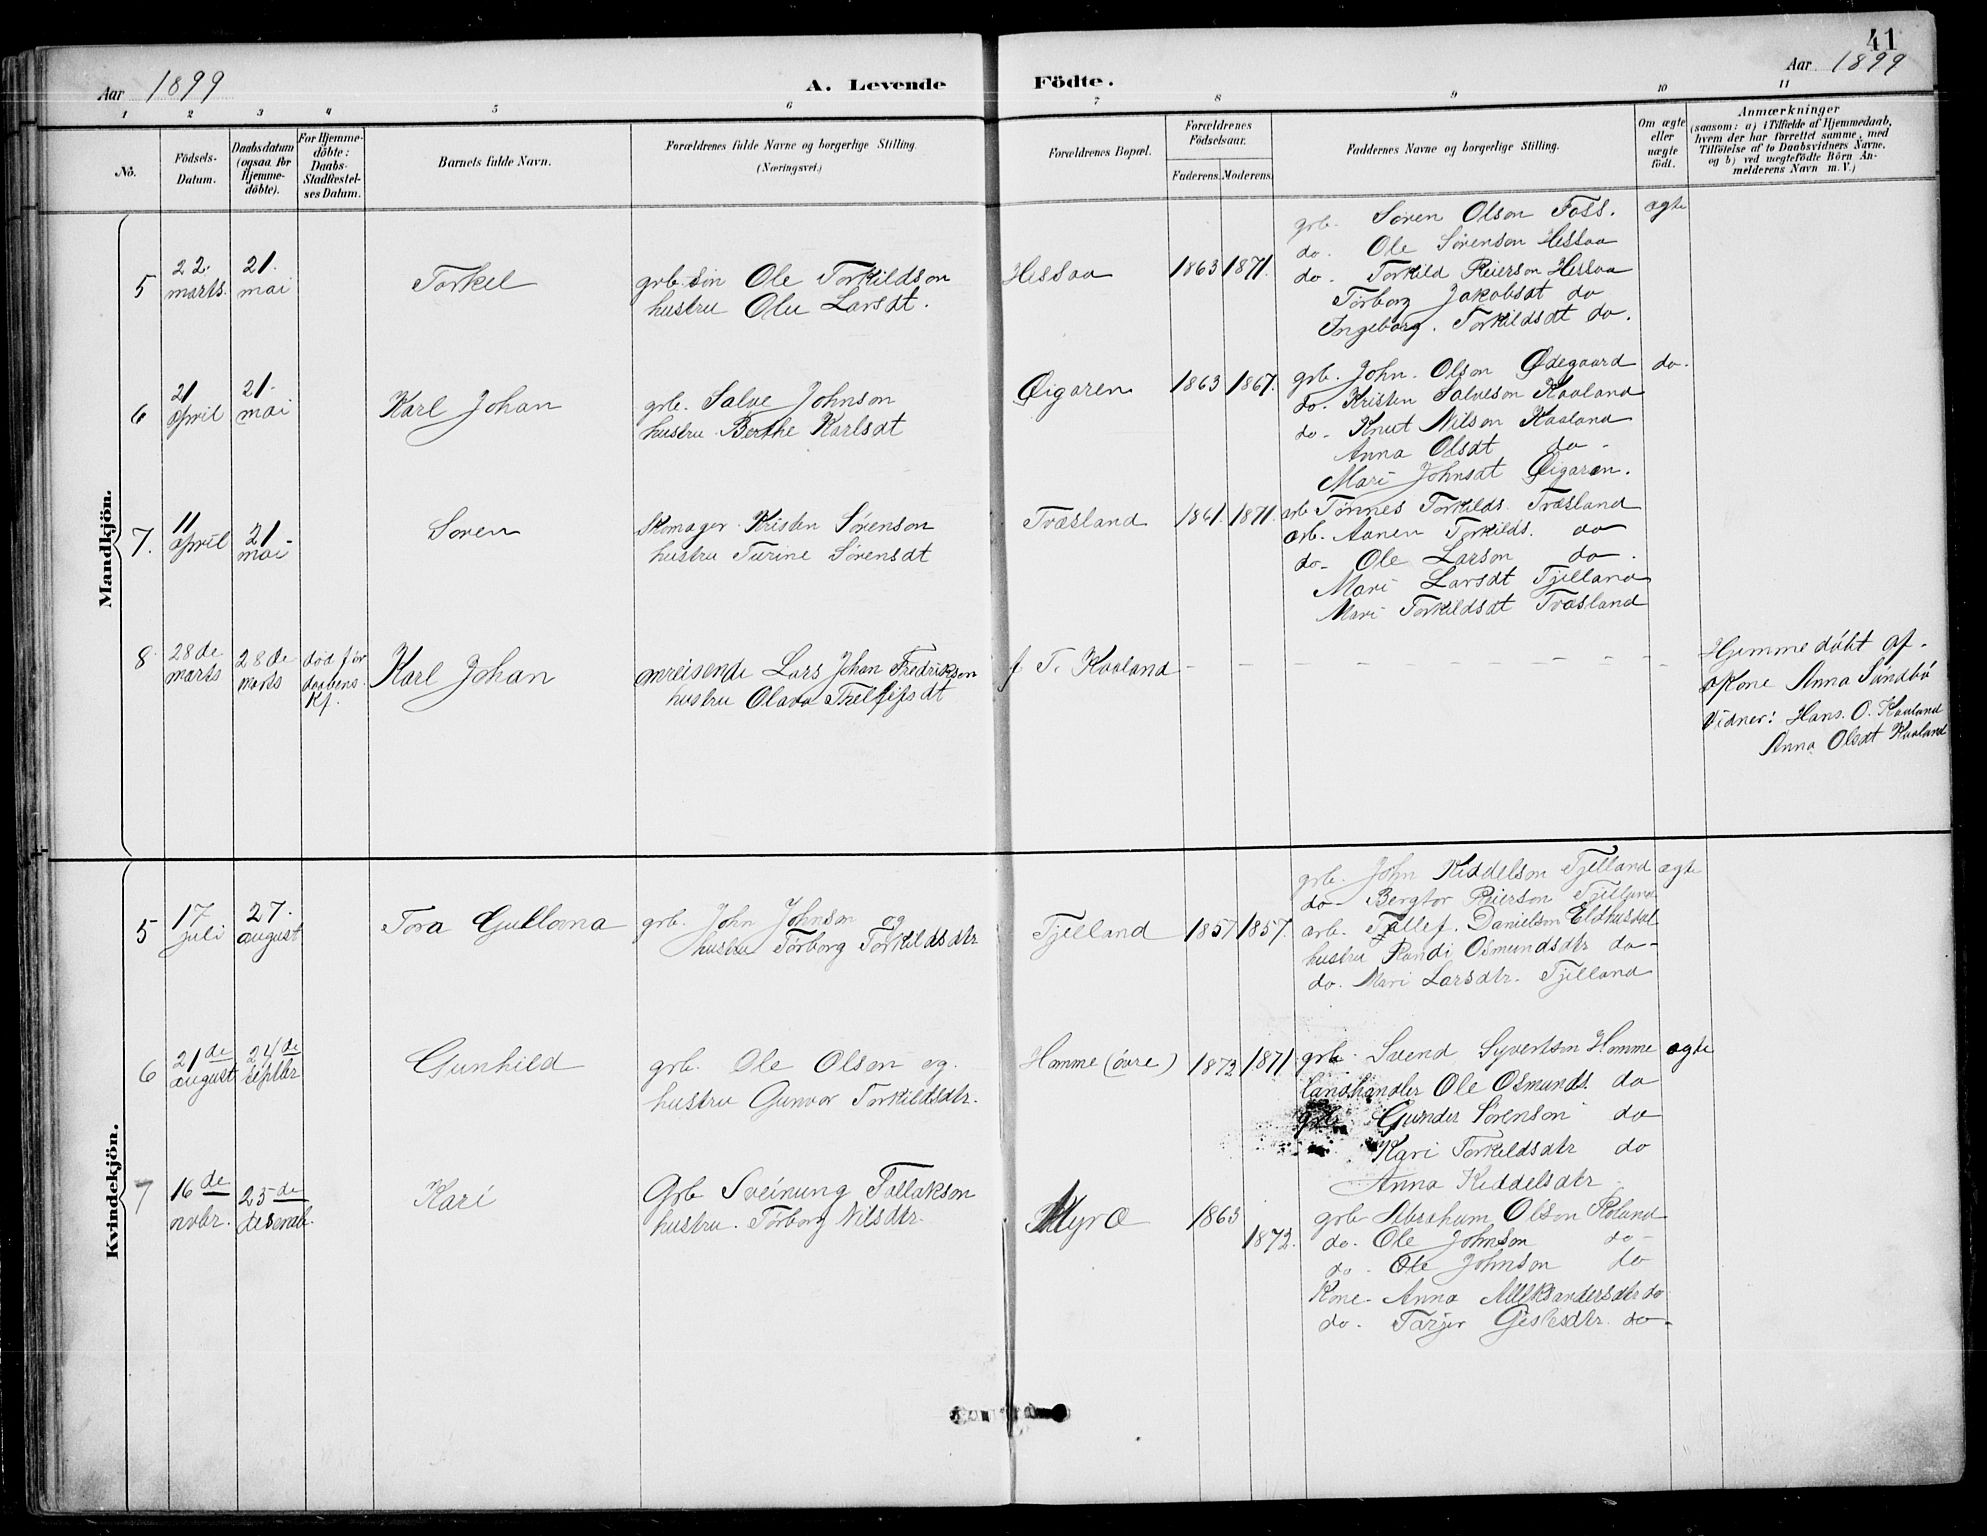 41
Aar 1899
A. Levende Födte.
Aar 1899
1 2 3 4 5 6 7 8 9 10 11
No.
Födsels-Datum.
Daabsdatum (ogsaa for Hjemme-döbte).
For Hjemme-döbte: Daabs-Stadfæstel-ses Datum.
Barnets fulde Navn.
Forældrenes fulde Navne og borgerlige Stilling.
(Næringsvei.)
Forældrenes Bopæl.
Forældrenes Födselsaar.
Faderens. Moderens.
Faddernes Navne og borgerlige Stilling.
Om ægte eller uægte födt.
Anmærkninger
(saasom: a) i Tilfælde af Hjemmedaab, hvem der har forrettet samme, med Tilföielse af to Daabsvidners Navne, og b) ved uegtefödte Börn An-melderens Navn m. V.)
Mandkjön.
5 22. marts. 21. mai Torkel
grb. sön Ole Torkildson
hustru Olu Larsdt.
Hessaa 1863 1871.
grb. Søren Olson Foss. ægte
do. Ole Sørenson Hessaa
do. Torkild Reierson Hessaa
Torborg Jakobsdt do
Ingeborg. Torkildsdt do.
6 21 april 21. mai Karl Johan
grb. Salve Johnson
hustru Berthe Karlsdt
Øigaren 1863 1867.
grb. John. Olson Ødegaard do.
do. Kristen Salveson Kaaland
do. Knut Nilson Kaaland
Anna Olsdt do
Mari Johnsdt Øigaren.
7. 11 april 21. mai Soren
Skomager Kristen Sørenson
hustru Turine Sørensdt
Træsland 1861. 1871.
arb Tønnes Torkilds. Træsland
arb. Aanen Torkilds. do
do. Ole Larson do.
Mari Larsdt Tjelland
Mari Torkildsdt Træsland
8. 28de marts 28de marts død før daabens Kf. Karl Johan
omreisende Lars Johan Fredrikson
hustru Olava
f T. Kaaland
Hjemmedøbt af
Kone Anna Sundbø
Vidner: Hans. O. Kaaland
Anna Olsdt Kaaland
Kvindekjön.
5 17. juli 27. august Tora Gullovna
grb. John Johnson og
hustru Tørborg Torkildsdtr
Tjelland 1857 1857.
grb. John Kiddelson Tjelland ægte
do Bergtor Reierson Tjelland
arb. Tellef. Danielson Eldhusdal
hustru Randi Osmundsdtr do
do. Mari Larsdtr. Tjelland
6 21de august 24de septbr Gunhild
grb. Ole Olson og
hustru Gunvor Torkildsdtr.
Homme (øvre) 1872 1871.
grb. Svend Syvertson Homme ægte
landhandler Ole Osmunds. do
grb. Gunder Sorenson do
Kari Torkildsdtr do
Anna Kiddelsdtr
7 16de novbr. 25de desemb. Kari
Grb Sveinung Tallakson
hustru. Tørborg Nilsdtr.
Myra 1863 1872.
grb Abraham Olson Roland
do. Ole Johnson do
do. Ole Johnson do
Kone. Anna Alleksandersdtr do
do. Tarjer Gislesdtr. do